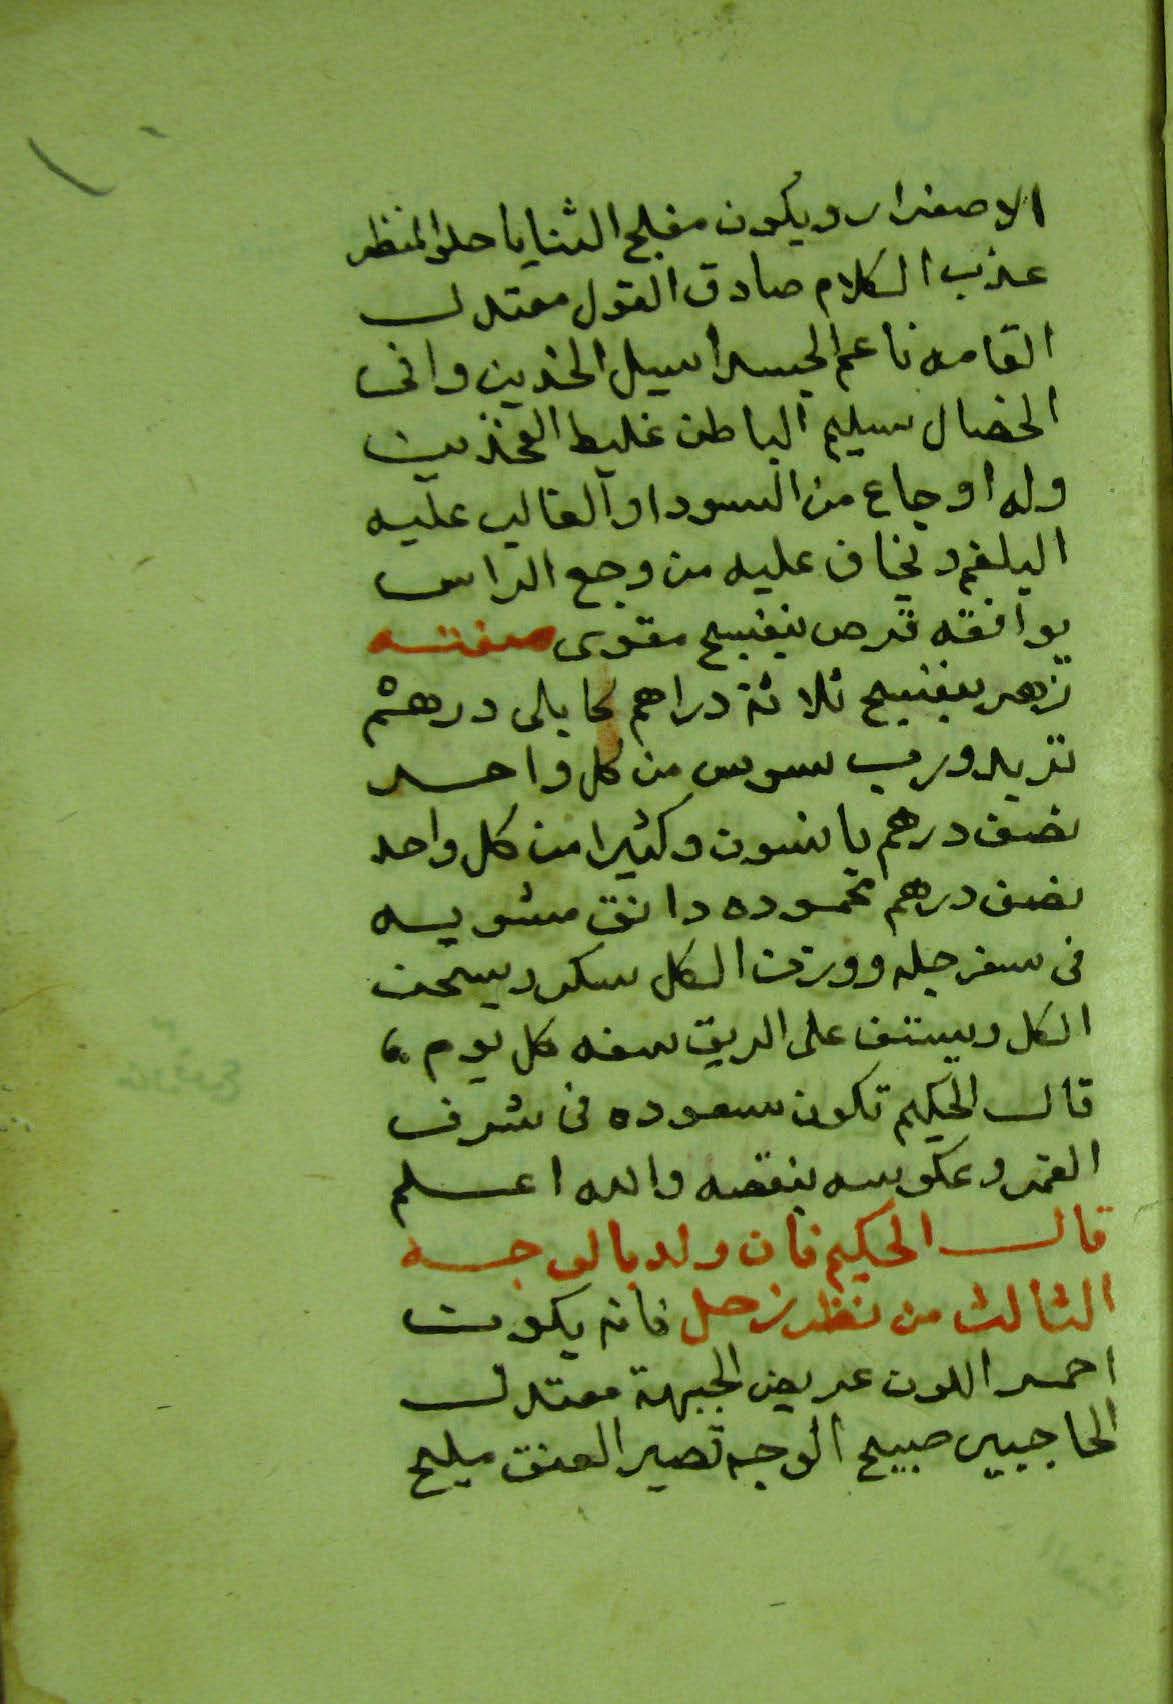 الاصفرار ويكون مفلج الثنايا حلو المنظر
عذب الكلام صادق القول معتدل
القامه ناعم الجسد اسيل الخدين وافى
الخصال سليم الباطن غليظ الفخذين
وله اوجاع من السودا والغالب عليه
البلغم ويخاف عليه من وجع الراس
يوافقه قرص بنفسج مقوى صفته
زهر بنفسج ثلاثة دراهم كابلى درهم
تربد ورب سوس من كل واحد
نصف درهم يانسون وكثيرا من كل واحد
نصف درهم محموده دانق مشويه
فى سفرجله ووزن الكل سكر ويسحق
الكل ويستف على الريق سفه كل يوم
قال الحكيم تكون سعوده فى شرف
القمر وعكوسه بنقصه والله اعلم
قال الحكيم فان ولد بالوجه
الثالث من نظر زحل فانه يكون
احمر اللون عريض الجبهة معتدل
الحاجبين صبيح الوجه قصير العنق مليح